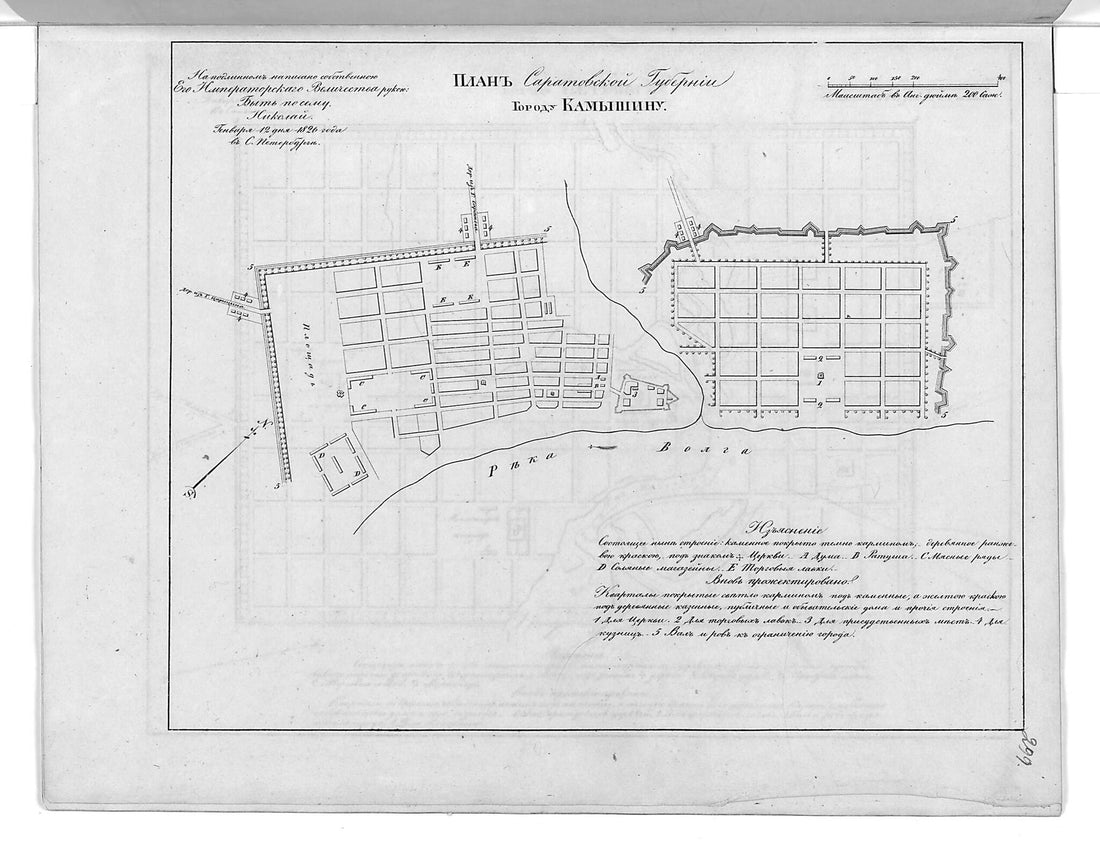 На подлинномъ написано собственною
Его Императорскаго Величества рукою:
Быть по сему.
Николай.
Генваря 12 дня 1826 года
въ С. Петербургѣ.
ПЛАНЪ Саратовской Губерніи
Городу КАМЫШИНУ.
0 50 100 150 200 400
Масштабъ въ Анг. дюймѣ 200 саж.
Дор. изъ Г.
Дор. изъ Г.
Площадь
Рѣка Волга
Изъясненіе
Состоящее нынѣ строеніе: каменное покрыто темно карминомъ, деревянное ранже-
вою краскою, подъ знакомъ Церкви. А Дума. В Ратуша. С Мясные ряды
D Соляные магазейны. Е Торговыя лавки.
Вновь прожектировано:
Кварталы покрытые свѣтло карминомъ подъ каменные, а желтою краскою
подъ деревянные казенные, публичные и обывательскіе дома и прочія строенія.
1 Для Церкви. 2 Для торговыхъ лавокъ. 3 Для присудственныхъ мѣстъ. 4 Для
кузницъ. 5 Валъ и ровъ къ ограниченію города.
299.